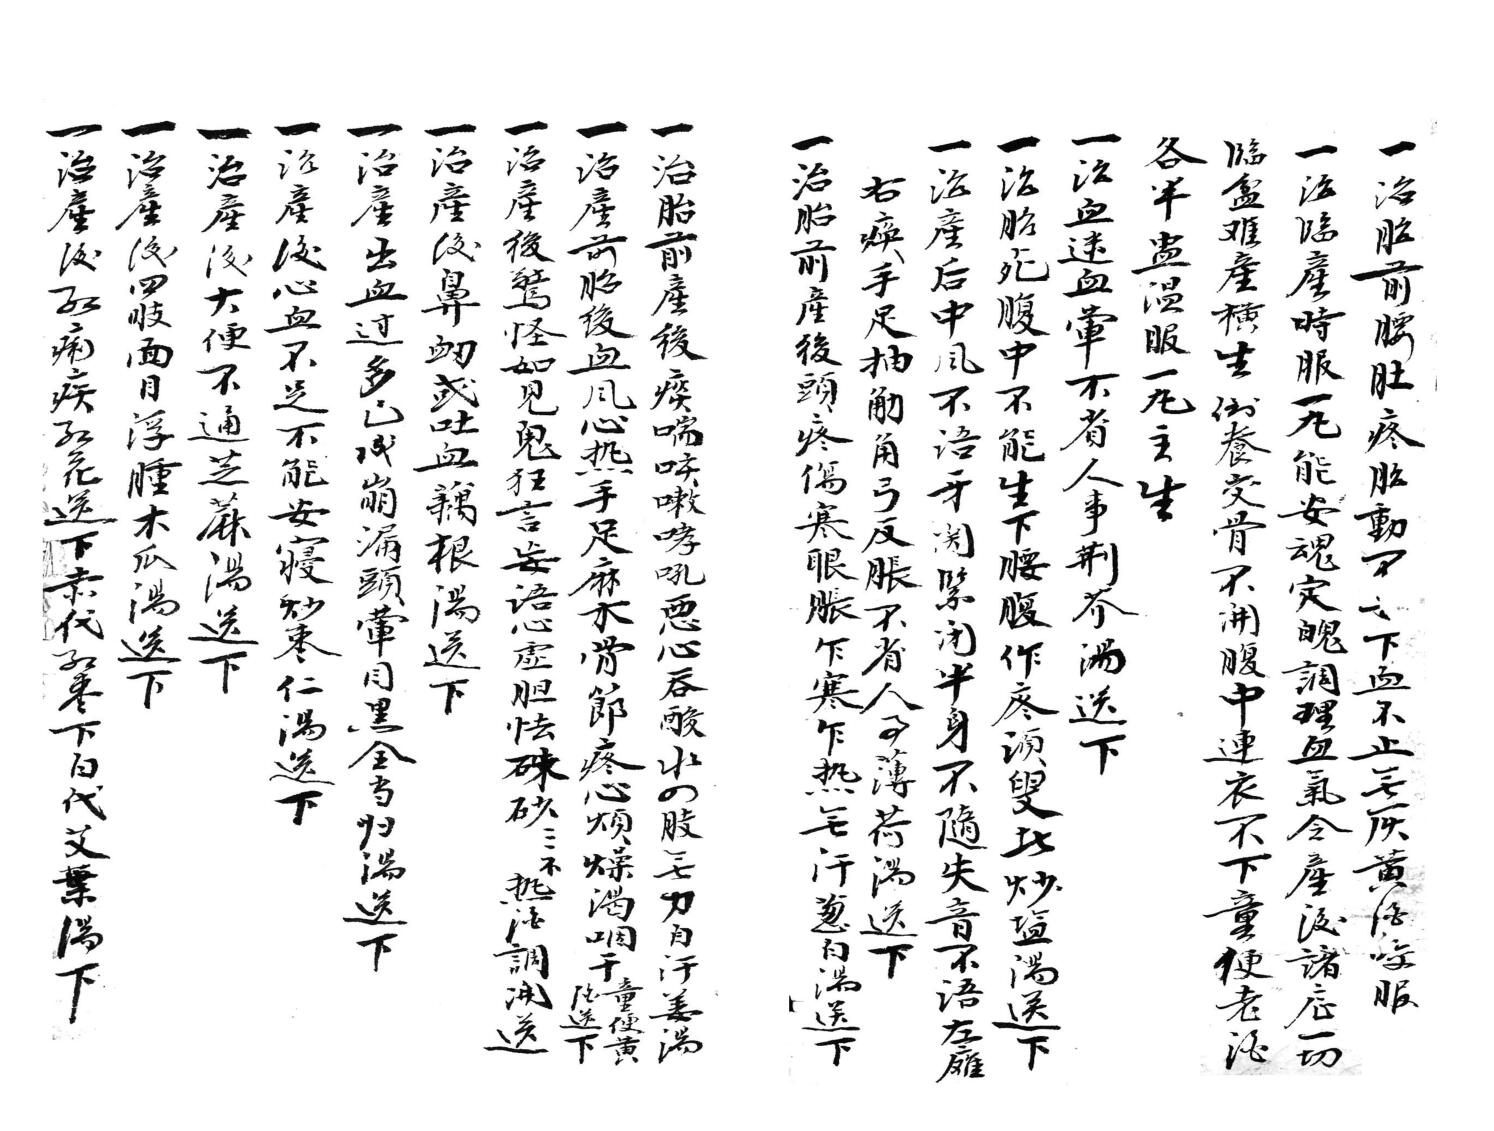 一治胎前腰肚疼胎動不安下血不止無灰黃酒送服
一治臨產時服一丸能安魂定魄調理血氣令產後諸症一切
臨盆难產橫生倒養交骨不開腹中連衣不下童便老酒
各半盅温服一丸主生
一治血迷血暈不省人事荆芥湯送下
一治胎死腹中不能生下腰腹作疼須叟比炒塩湯送下
一治產后中風不语牙関緊闭半身不隨失音不语左癱
右瘓手足抽觔角弓反脹不省人事薄荷湯送下
一治胎前產後頭疼傷寒眼脹乍寒乍热無汗葱白湯送下
一治胎前產後痰喘咳嗽哮吼惡心吞酸水四肢無力自汗姜湯
一治產前胎後血風心热手足麻木骨節疼心煩燥渴咽干童便黃酒送下
一治產後驚怪如見鬼狂言妄语心虚胆怯硃砂三不热酒調沖送
一治產後鼻衄或吐血藕根湯送下
一治產出血过多已成崩漏頭暈目黑全当归湯送下
一治產後心血不足不能安寢炒棗仁湯送下
一治產後大便不通芝蔴湯送下
一治產後四肢面目浮腫木瓜湯送下
一治產後红痢疾红花送下赤代红棗下白代艾葉湯下